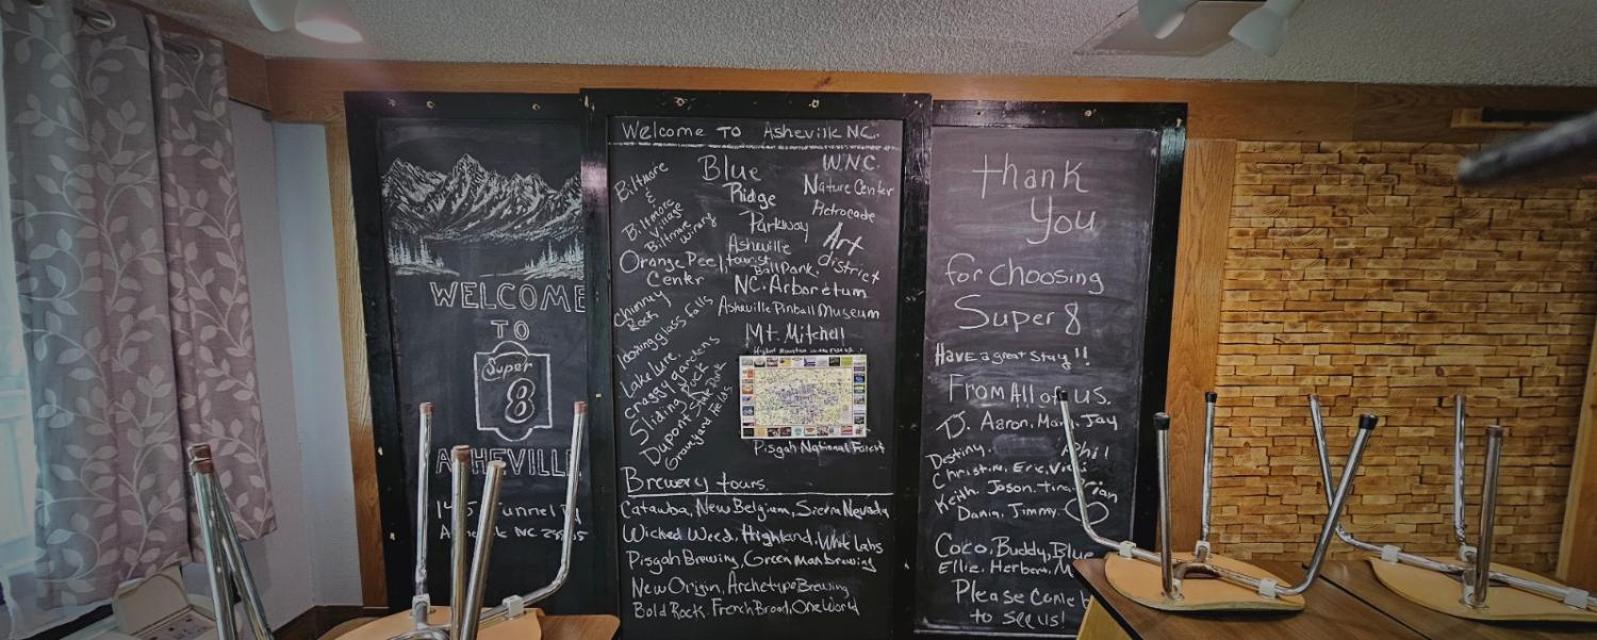 WELCOME
TO
Super
8
ASHEVILLE
Tunnel
NC
Welcome TO Asheville NC.
Biltmore
&
Biltmore
Village
Biltmore
winery
Orange Peel
Center
Chimney
Rock
looking glass falls
Lake lure.
craggy gardens
Sliding Rock
Dupont State Park
Graveyard fields
Blue
Ridge
Parkway
Asheville
tourist
Ball Park.
W.N.C.
Nature Center
Retrocade
Art
district
NC. Arboretum
Asheville Pinball Museum
Mt. Mitchell
Pisgah National Forest
Brewery tours.
Catawba, New Belgium, Sierra Nevada
Wicked Weed, Highland, White Labs
Pisgah Brewing, Green man brewing
New Origin, Archetype Brewing
Bold Rock, French Broad, One World
thank
You
for choosing
Super 8
Have a great stay!!
From All of us.
D. Aaron, Mary, Jay
Destiny. Phil
Christina, Eric, Vicki
Keith. Jason. tina. Brian
Dania, Jimmy.
Coco, Buddy, Blue
Ellie, Herbert, M
Please Come b
to see us!